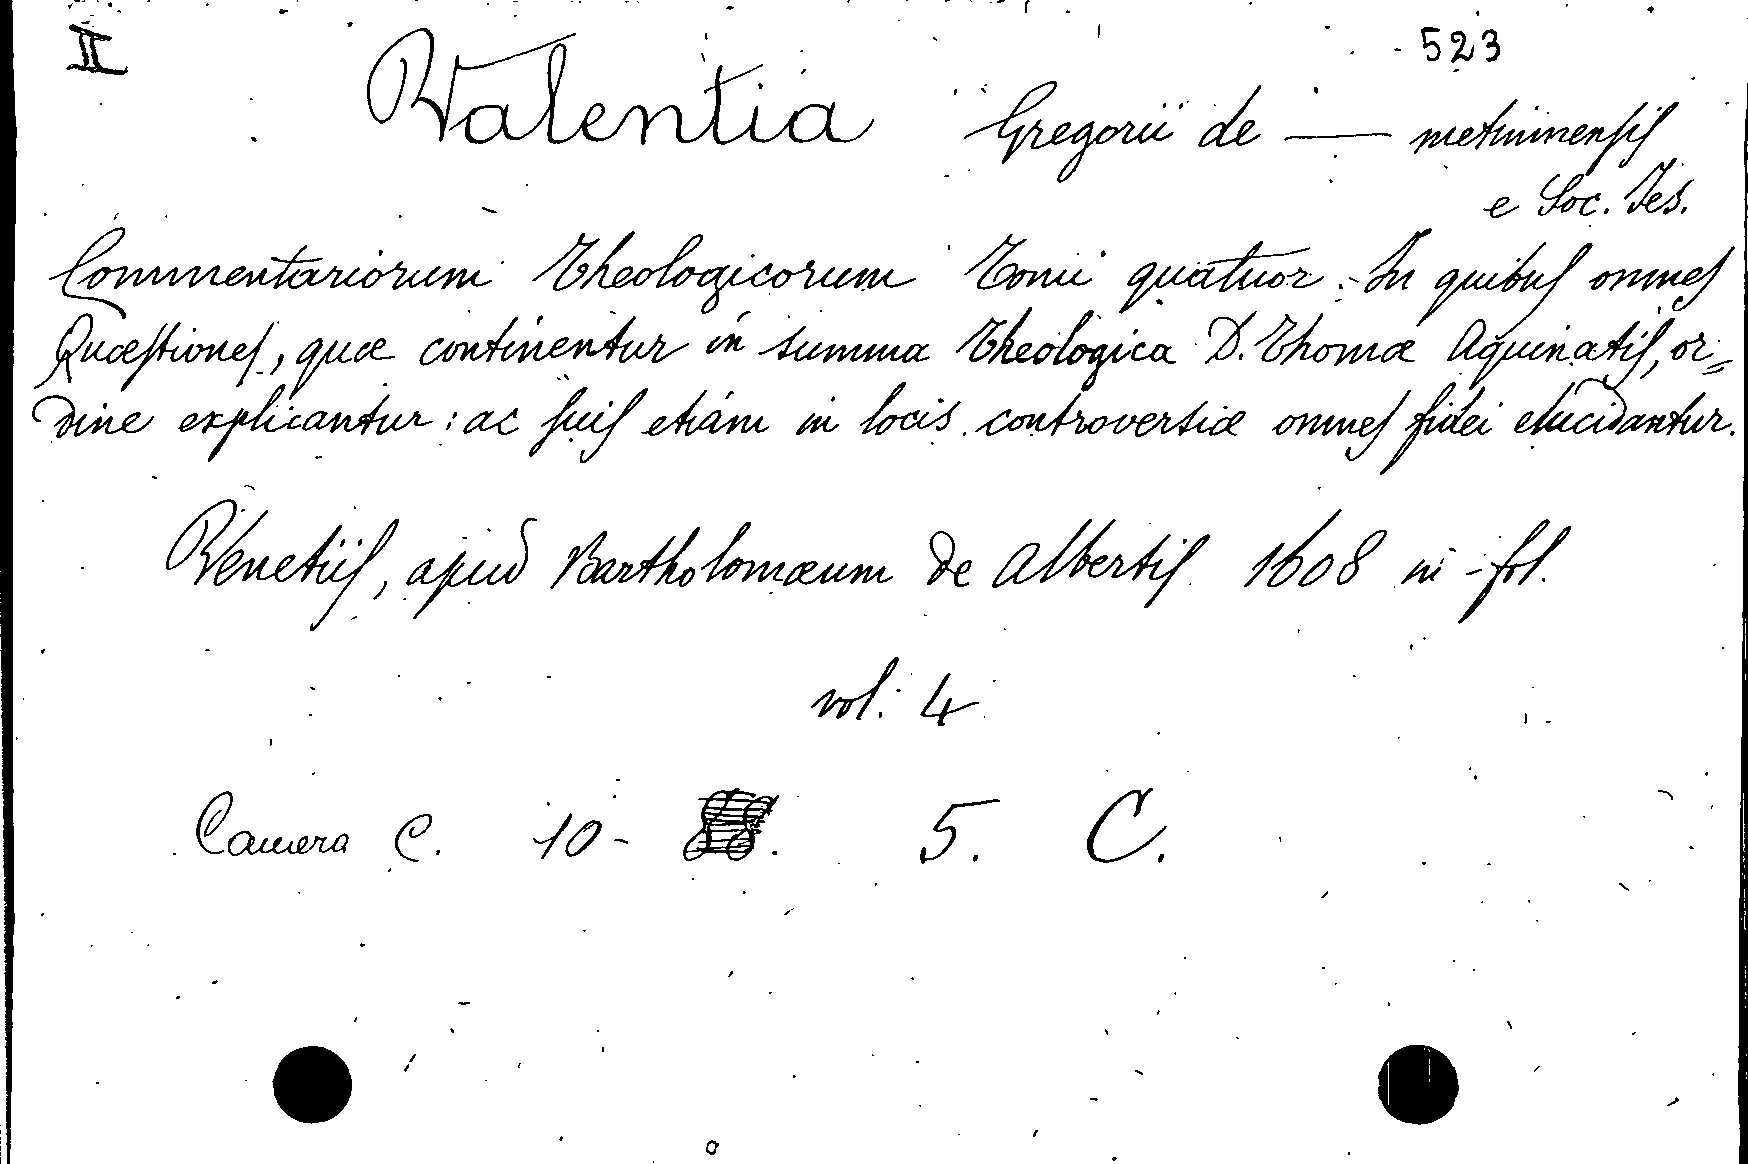 II
523
Valentia Gregorii de — metimnensis
e Soc. Jes.
Commentariorum Theologicorum Tomi quatuor. In quibus omnes
Quæstiones, quæ continentur in summa Theologica D. Thomæ Aquinatis, or=
dine explicantur: ac suis etiam in locis controversiæ omnes fidei elucidantur.
Venetiis, apud Bartholomæum de Albertis 1608 in-fol.
vol. 4
Camera C. 10- 5. C.